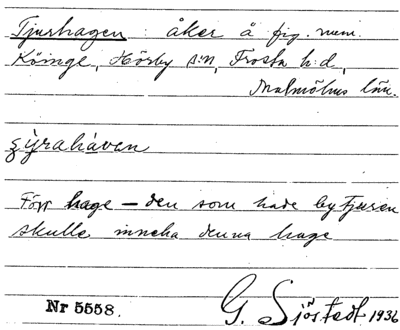 Tjurhagen : åker å fig. num.
Köinge, Hörby s:n, Frosta h:d,
Malmöhus län.
Förr hage – den som hade byatjuren
skulle inneha denna hage
Nr 5558.
G. Sjöstedt 1936